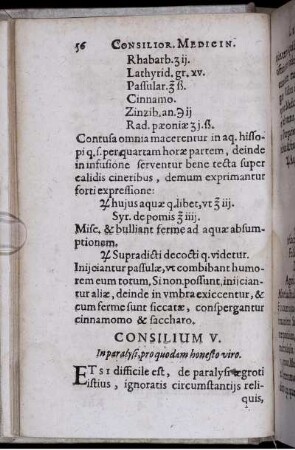 56 CONSILIOR. MEDICIN.
Rhabarb. ʒ ij.
Lathyrid. gr. xv.
Passular. ℥ ß.
Cinnamo.
Zinzib. an. ℈ ij
Rad. pæoniæ ʒ j. ß.
Contusa omnia macerentur in aq. hisso-
pi q. s. per quartam horæ partem, deinde
in infusione serventur bene tecta super
calidis cineribus, demum exprimantur
forti expressione:
♃ hujus aquæ q. libet, vt ℥ iij.
Syr. de pomis ℥ iiij.
Misc. & bulliant ferme ad aquæ absum-
ptionem.
♃ Supradicti decocti q. videtur.
Injiciantur passulæ, vt combibant humo-
rem eum totum, Si non possunt, iniician-
tur aliæ, deinde in vmbra exiccentur, &
cum ferme sunt siccatæ, conspergantur
cinnamomo & saccharo.
CONSILIUM V.
In paralysi, pro quodam honesto viro.
ETSI difficile est, de paralysi ægroti
istius, ignoratis circumstantijs reli-
quis,